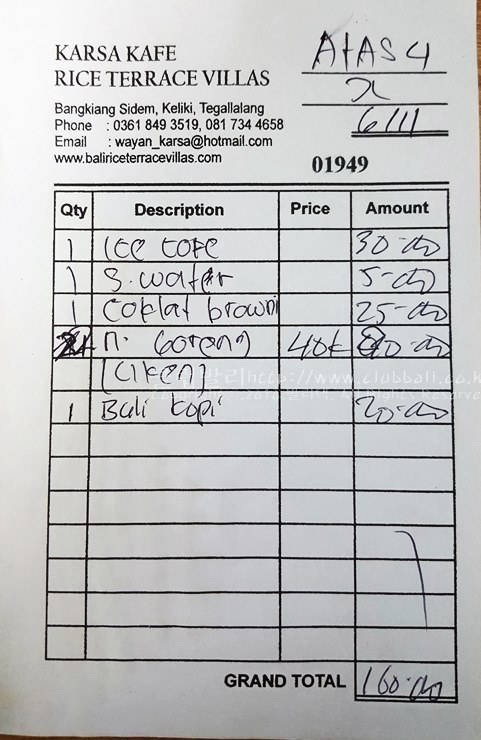 KARSA KAFE
RICE TERRACE VILLAS
Bangkiang Sidem, Keliki, Tegallalang
Phone : 0361 849 3519, 081 734 4658
Email : wayan_karsa@hotmail.com
www.baliriceterracevillas.com
ATAS 4
6/11
01949
Qty Description Price Amount
1 Ice kope 30-00
1 S. water 5-00
1 Coklat browni 25-00
n. Goreng 40k 80-00
http://www.clubbali.co.k
1 Bali kopi 20-00
GRAND TOTAL 160-00